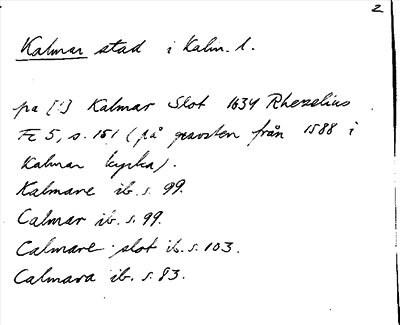 2
Kalmar stad i Kalm. l.
pa [!] Kalmar Slot 1634 Rhezelius
Fc 5, s. 151 (på gravsten från 1588 i
Kalmar kyrka).
Kalmare ib. s. 99.
Calmar ib. s. 99.
Calmare slot ib. s. 103.
Calmara ib. s. 83.